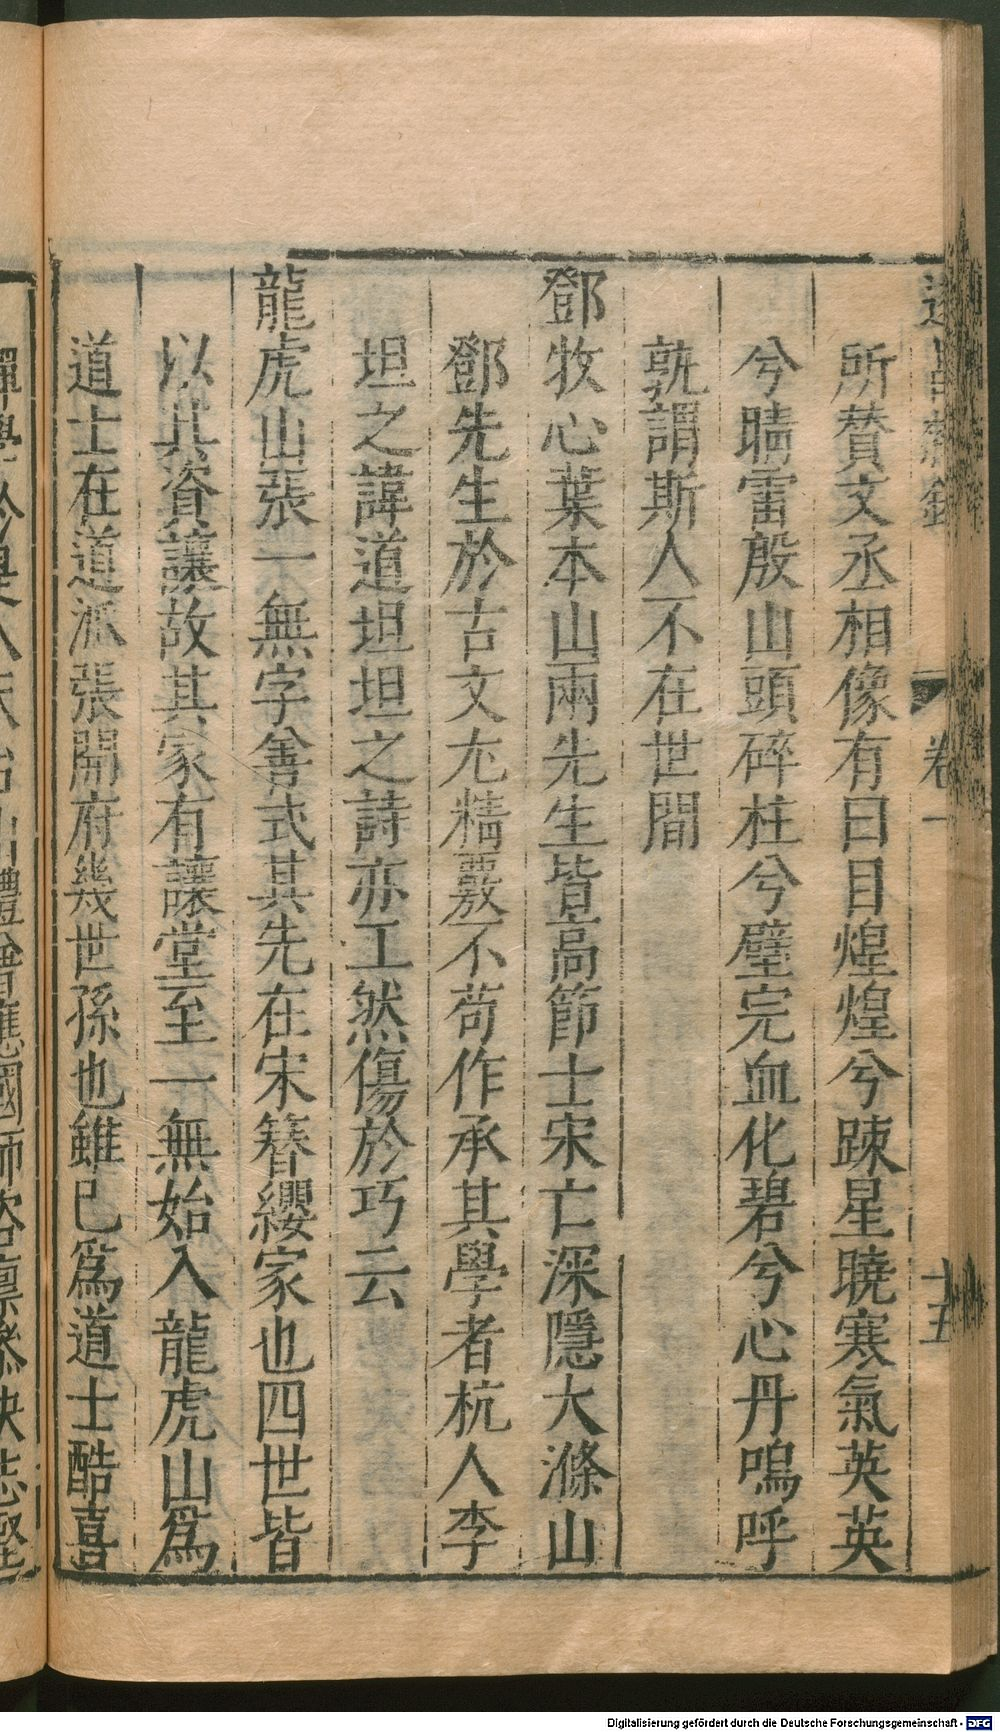 卷一
十五
所賛文丞相像有曰目煌煌兮踈星曉寒氣英英
兮晴雷殷山頭碎柱兮璧完血化碧兮心丹嗚呼
孰謂斯人不在世間
鄧牧心葉本山兩先生皆高節士宋亡深隱大滌山
鄧先生於古文尢精覈不苟作承其學者杭人李
坦之諱道坦坦之詩亦工然傷於巧云
龍虎山張一無字善式其先在宋簪纓家也四世皆
以其資讓故其家有讓堂至一無始入龍虎山爲
道士在道派張開府幾世孫也雖已爲道士酷喜
Digitalisierung gefördert durch die Deutsche Forschungsgemeinschaft - DFG